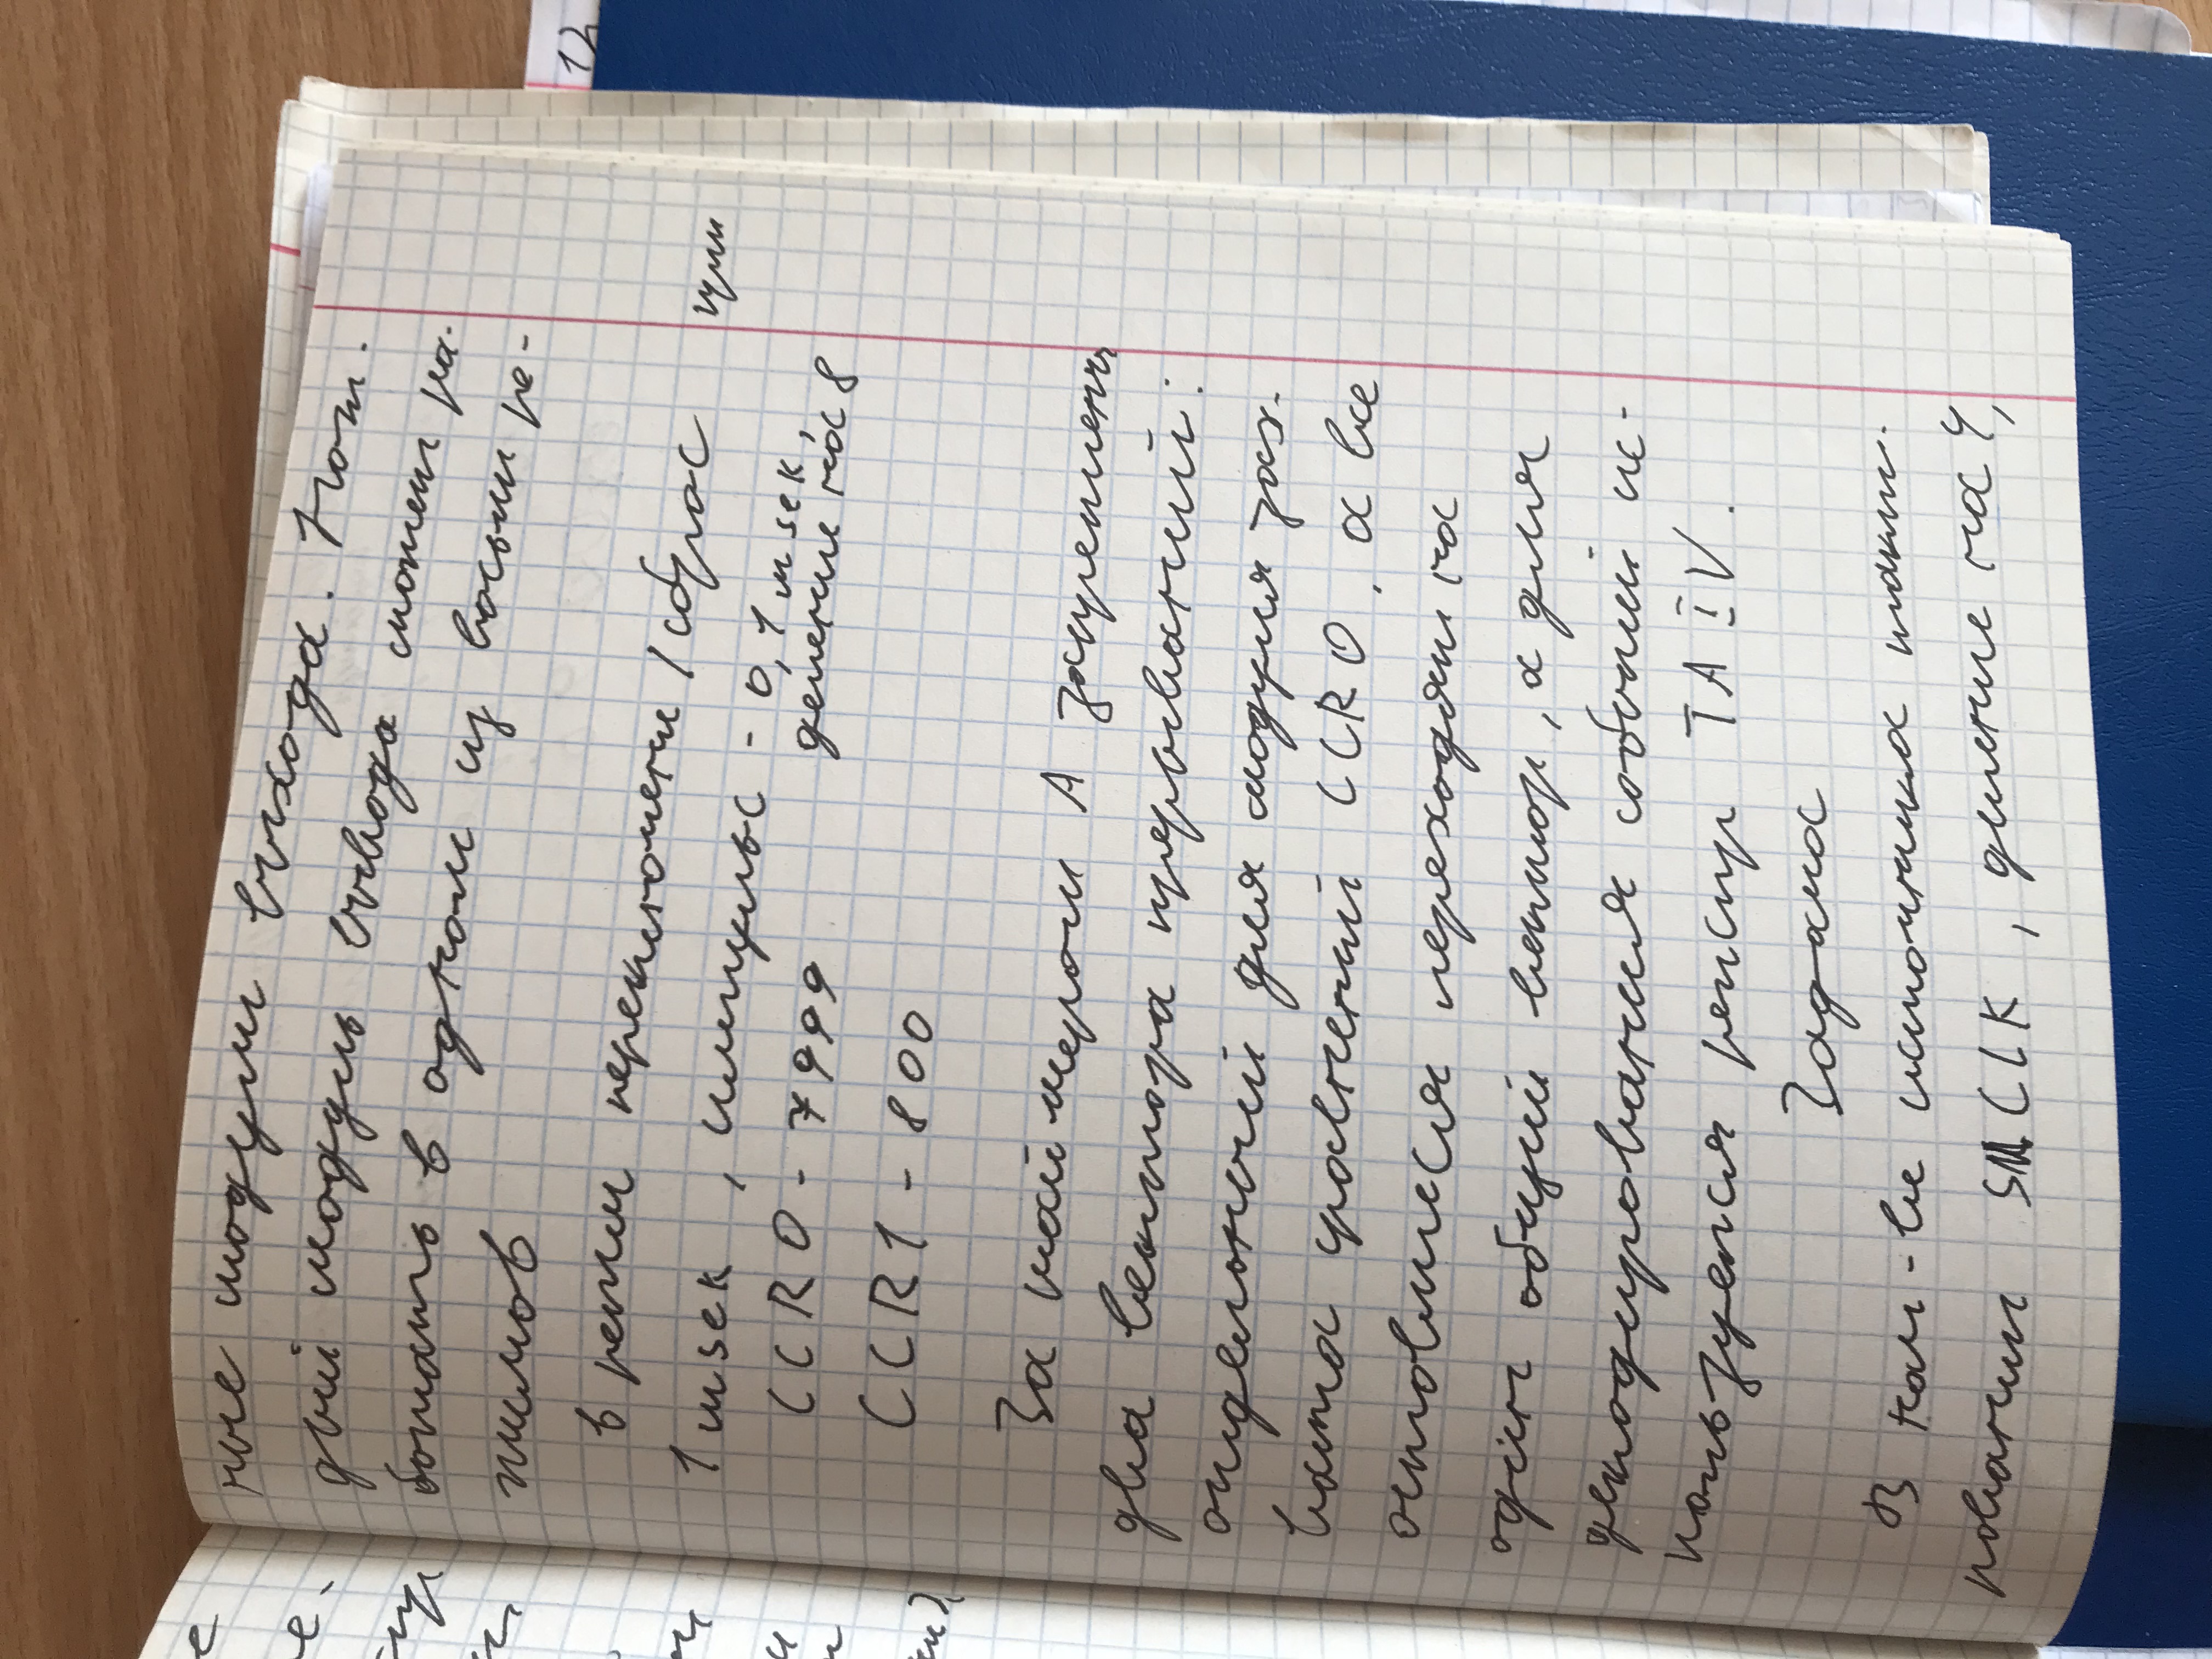 ные модули выхода. Каж-
дый модуль вывода может ра-
ботать в одном из восьми ре-
жимов
в режим переключение / сброс при
1 мsек, импульс - 0,1 мsек,
деление на 8
CCR0 - 7999
CCR1 - 800
За таймером А закреплены
два вектора прерываний:
отдельный для модуля зах-
вата сравнений CCR0, а все
оставшиеся переходят на
один общий вектор, а для
декодирования событий ис-
пользуется регистр TAIV.
Задача
В кач-ве источника такти-
рования SMCLK, деление на 4,
12